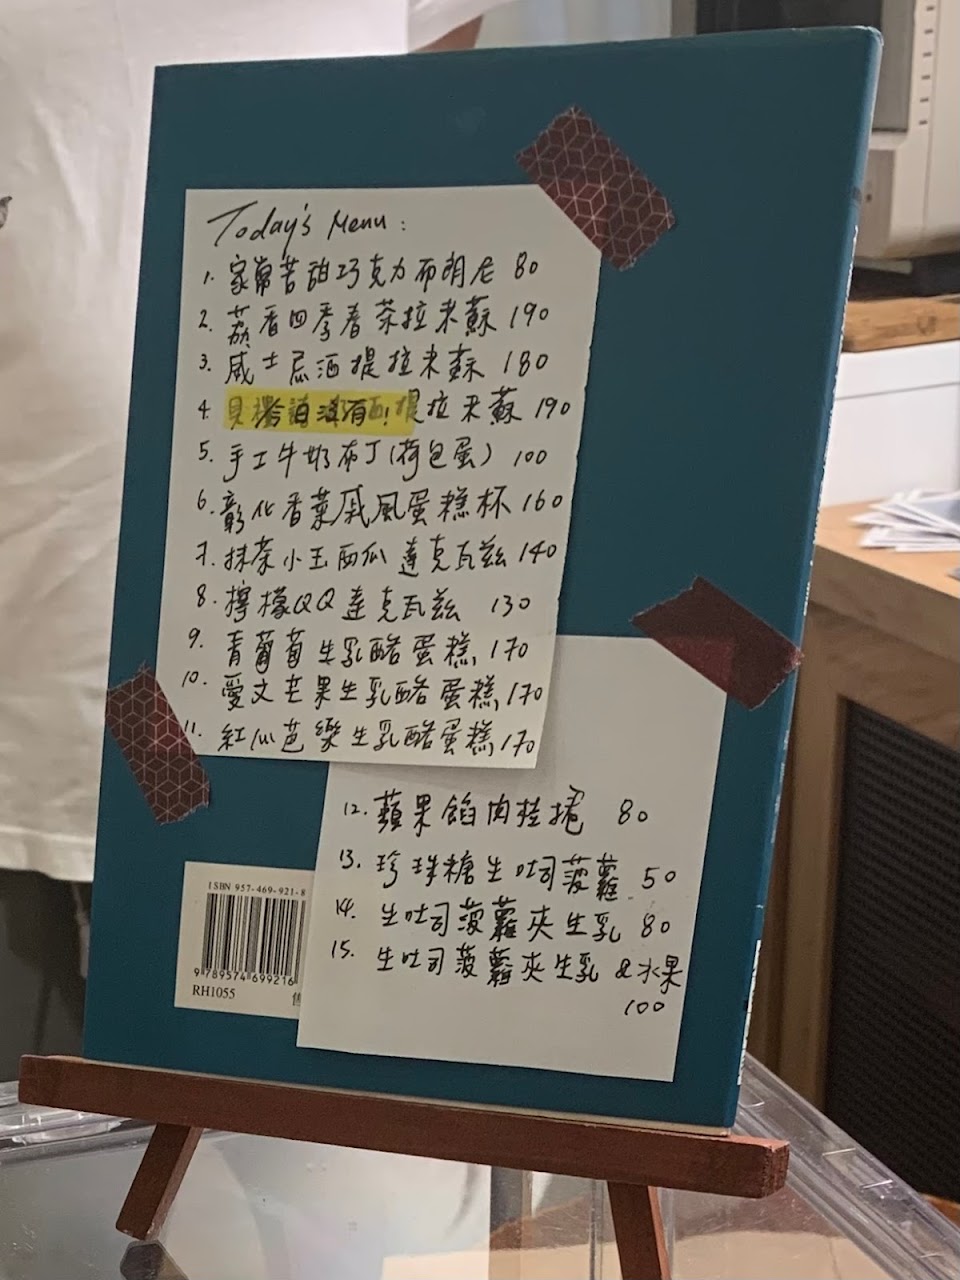 Today's Menu :
1. 家常苦甜巧克力布朗尼 80
2. 荔香四季春茶拉米蘇 190
3. 威士忌酒提拉米蘇 180
4. 提拉米蘇 190
5. 手工牛奶布丁(荷包蛋) 100
6. 彰化香菜戚風蛋糕杯 160
7. 抹茶小玉西瓜達克瓦茲 140
8. 檸檬QQ達克瓦茲 130
9. 青葡萄生乳酪蛋糕 170
10. 愛文芒果生乳酪蛋糕 170
11. 紅心芭樂生乳酪蛋糕 170
12. 蘋果餡肉桂捲 80
13. 珍珠糖生吐司菠蘿 50
14. 生吐司菠蘿夾生乳 80
15. 生吐司菠蘿夾生乳 & 水果
100
ISBN 957-469-921-8
9 789574 699216
RH1055